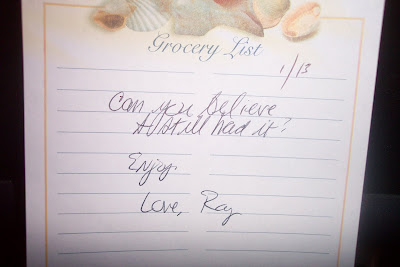 Grocery List
1/13
Can you believe
I still had it?
Enjoy
Love, Ray